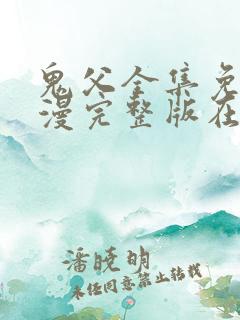 鬼父全集免
漫完整版在
潘晓明
未经同意禁止转载